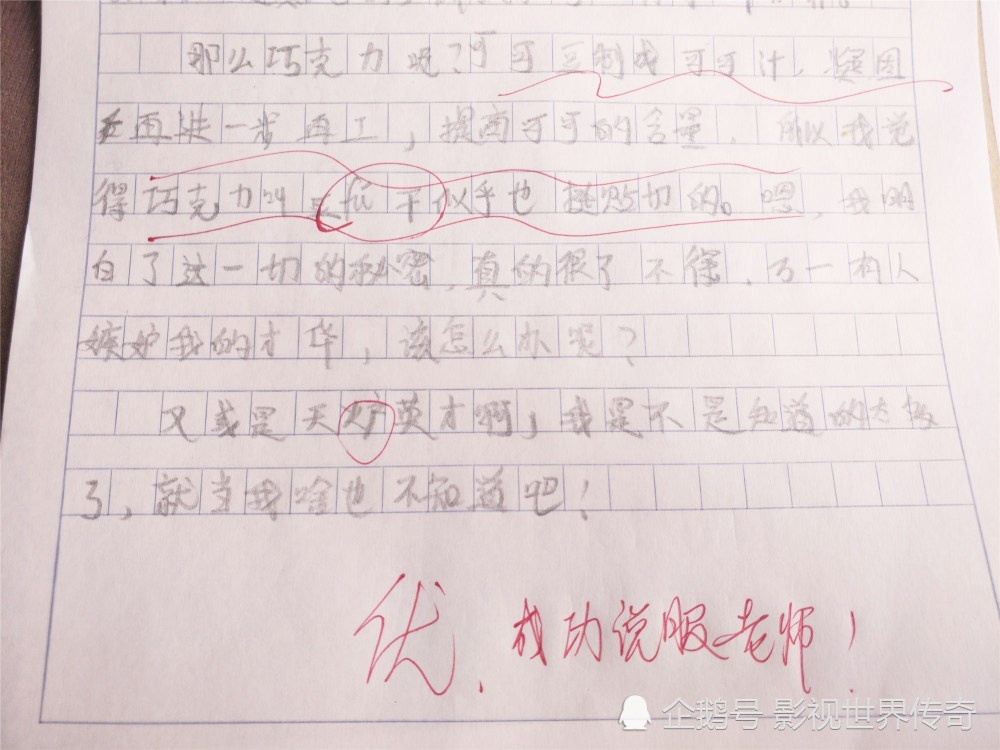 那么巧克力呢?可可豆制成可可汁,
再进一步再工,提高可可的含量,所以我觉
得巧克力叫豆腐干似乎也挺贴切的。嗯,我明
白了这一切的秘密,真的很了不得,万一有人
嫉妒我的才华,该怎么办呢?
又或是天妒英才啊,我是不是知道的太多
了,就当我啥也不知道吧!
优、成功说服老师!
企鹅号 影视世界传奇